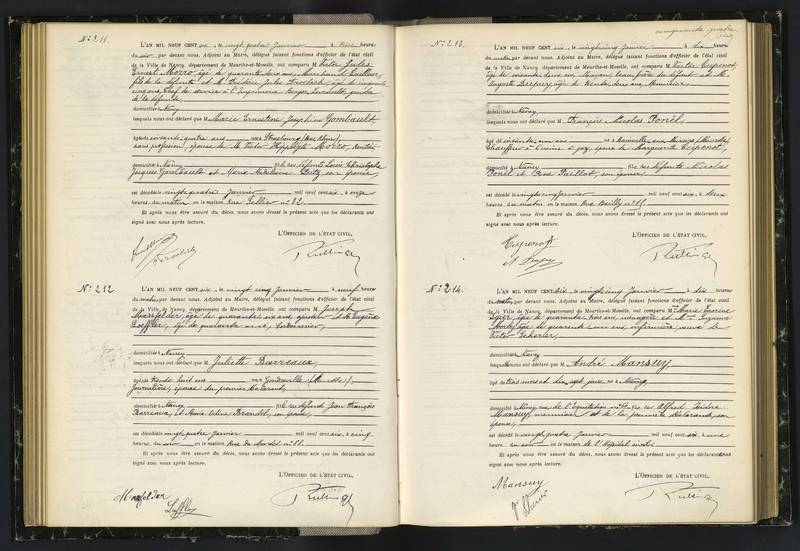 N° 211.
L'AN MIL NEUF CENT six, le vingt quatre Janvier à trois heures
du soir, par devant nous, Adjoint au Maire, délégué faisant fonctions d'officier de l'état civil
de la Ville de Nancy, département de Meurthe-et-Moselle, ont comparu M. Victor Jules
Ernest Morro, âgé de quarante deux ans,
fils de la défunte et M. Jules Froelich, âgé de cinquante
cinq ans, Chef de service à l'Imprimerie Berger Levrault, gendre
de la défunte,
domiciliés à Nancy
lesquels nous ont déclaré que M. Marie Ernestine Joséphine Gombault
âgée de soixante quatre ans née à Strasbourg (Bas Rhin),
sans profession, épouse de M. Victor Hippolyte Morro, rentier
domiciliée à Nancy fille des défunts Louis Christophe
Jacques Gombault et Marie Madeleine Bitz son épouse,
est décédée le vingt quatre Janvier mil neuf cent six, à onze
heures du matin en la maison rue Sellier n° 82.
Et après nous être assuré du décès, nous avons dressé le présent acte que les déclarants ont
signé avec nous après lecture.
L'OFFICIER DE L'ÉTAT CIVIL,
N° 212
L'AN MIL NEUF CENT six, le vingt cinq Janvier à neuf heures
du matin par devant nous, Adjoint au Maire, délégué faisant fonctions d'officier de l'état civil
de la Ville de Nancy, département de Meurthe-et-Moselle, ont comparu M. Joseph
Marxfelder, âgé de quarante six ans, ajusteur et M. Eugène
Laffley, âgé de quarante ans, cordonnier,
domiciliés à Nancy
lesquels nous ont déclaré que M. Juliette Barreaux,
âgée de trente huit ans née à Gondreville (Meurthe),
journalière, épouse du premier déclarant,
domiciliée à Nancy fille des défunts Jean François
Barreaux, et Marie Victoire Brandel, son épouse,
est décédée le vingt quatre Janvier mil neuf cent six, à cinq
heures du soir en la maison Rue du Maréchal n° 11.
Et après nous être assuré du décès, nous avons dressé le présent acte que les déclarants ont
signé avec nous après lecture.
L'OFFICIER DE L'ÉTAT CIVIL,
Laffley
cinquante quatre
N° 213.
L'AN MIL NEUF CENT six, le vingt cinq Janvier à dix heures
du matin, par devant nous, Adjoint au Maire, délégué faisant fonctions d'officier de l'état civil
de la Ville de Nancy, département de Meurthe-et-Moselle, ont comparu M. Victor Cuponot,
âgé de soixante deux ans, Maçon, beau frère du défunt et M.
Auguste Dupuy, âgé de trente deux ans, Menuisier,
domiciliés à Nancy
lesquels nous ont déclaré que M. François Nicolas Ponel,
âgé de soixante un ans né à
chauffeur à l'usine à gaz, époux de Marguerite Cuponot,
domicilié à Nancy fils des défunts Nicolas
Ponel et Anne Paillot, son épouse,
est décédé le vingt cinq Janvier mil neuf cent six, à deux
heures du matin en la maison Rue Bailly n° 15.
Et après nous être assuré du décès, nous avons dressé le présent acte que les déclarants ont
signé avec nous après lecture.
L'OFFICIER DE L'ÉTAT CIVIL,
Cuponot
A. Dupuy
N° 214.
L'AN MIL NEUF CENT six, le vingt cinq Janvier à dix heures
du matin, par devant nous, Adjoint au Maire, délégué faisant fonctions d'officier de l'état civil
de la Ville de Nancy, département de Meurthe-et-Moselle, ont comparu Mme Marie
âgée de quarante trois ans, ménagère et Mme Suzanne
âgée de quarante un ans infirmière, veuve de
Victor Scherier,
domiciliées à Nancy
lesquelles nous ont déclaré que M. André Mansuy,
âgé de trois mois et dix sept jours né à Nancy,
domicilié à Nancy rue de l'Equitation n° fils de Alfred Isidore
Mansuy, et de la première déclarante, son
épouse,
est décédé le vingt quatre Janvier mil neuf cent six, à une
heure du soir en la maison de l'hôpital civil.
Et après nous être assuré du décès, nous avons dressé le présent acte que les déclarants ont
signé avec nous après lecture.
L'OFFICIER DE L'ÉTAT CIVIL,
Mansuy